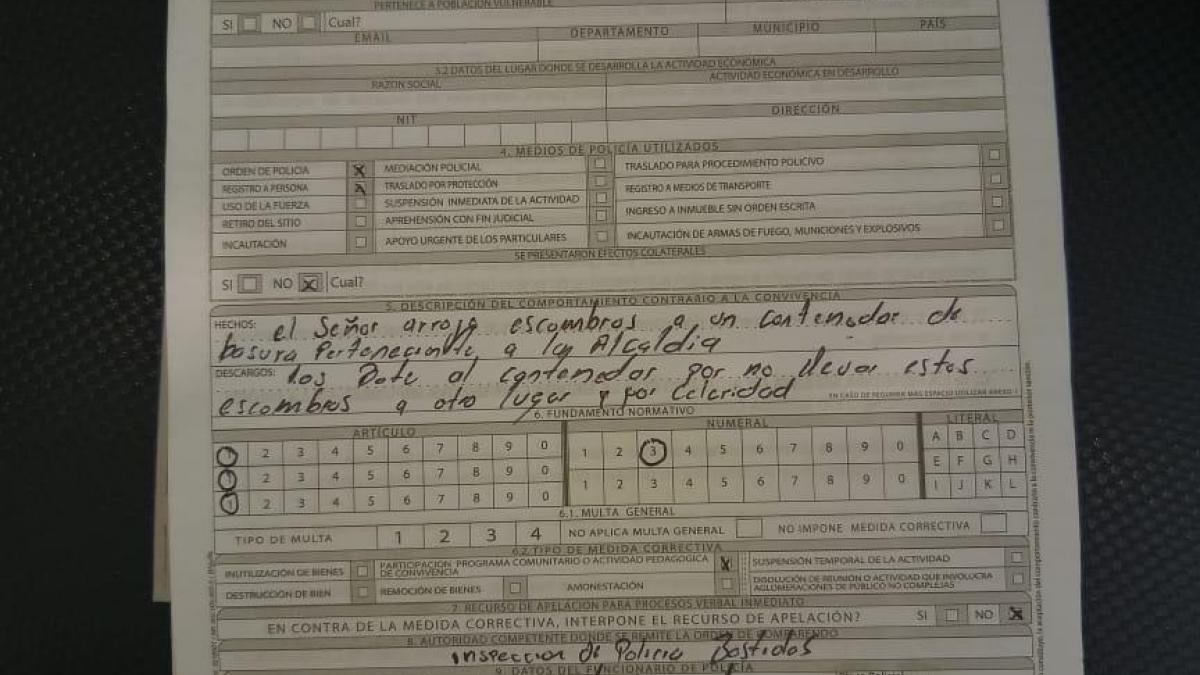 PERTENECE A POBLACIÓN VULNERABLE
SI NO Cual?
EMAIL DEPARTAMENTO MUNICIPIO PAÍS
3.2 DATOS DEL LUGAR DONDE SE DESARROLLA LA ACTIVIDAD ECONÓMICA
RAZON SOCIAL ACTIVIDAD ECONÓMICA EN DESARROLLO
NIT DIRECCIÓN
4. MEDIOS DE POLICÍA UTILIZADOS
ORDEN DE POLICIA X MEDIACIÓN POLICIAL TRASLADO PARA PROCEDIMIENTO POLICIVO
REGISTRO A PERSONA X TRASLADO POR PROTECCIÓN REGISTRO A MEDIOS DE TRANSPORTE
USO DE LA FUERZA SUSPENSIÓN INMEDIATA DE LA ACTIVIDAD INGRESO A INMUEBLE SIN ORDEN ESCRITA
RETIRO DEL SITIO APREHENSIÓN CON FIN JUDICIAL
INCAUTACIÓN APOYO URGENTE DE LOS PARTICULARES INCAUTACIÓN DE ARMAS DE FUEGO, MUNICIONES Y EXPLOSIVOS
SE PRESENTARON EFECTOS COLATERALES
SI NO X Cual?
5. DESCRIPCIÓN DEL COMPORTAMIENTO CONTRARIO A LA CONVIVENCIA
HECHOS: el Señor arroja escombros a un contenedor de
basura Perteneciente a la Alcaldia
DESCARGOS: los Bote al contenedor por no llevar estos
escombros a otro lugar y por Celeridad
EN CASO DE REQUERIR MAS ESPACIO UTILIZAR ANEXO 1
6. FUNDAMENTO NORMATIVO
ARTÍCULO NUMERAL LITERAL
1 2 3 4 5 6 7 8 9 0 1 2 3 4 5 6 7 8 9 0 A B C D
1 2 3 4 5 6 7 8 9 0 1 2 3 4 5 6 7 8 9 0 E F G H
1 2 3 4 5 6 7 8 9 0 I J K L
6.1. MULTA GENERAL
TIPO DE MULTA 1 2 3 4 NO APLICA MULTA GENERAL NO IMPONE MEDIDA CORRECTIVA
6.2. TIPO DE MEDIDA CORRECTIVA
INUTILIZACIÓN DE BIENES PARTICIPACIÓN PROGRAMA COMUNITARIO O ACTIVIDAD PEDAGÓGICA DE CONVIVENCIA X SUSPENSIÓN TEMPORAL DE LA ACTIVIDAD
DESTRUCCIÓN DE BIEN REMOCIÓN DE BIENES AMONESTACIÓN DISOLUCIÓN DE REUNIÓN O ACTIVIDAD QUE INVOLUCRA AGLOMERACIONES DE PÚBLICO NO COMPLEJAS
7. RECURSO DE APELACIÓN PARA PROCESOS VERBAL INMEDIATO
EN CONTRA DE LA MEDIDA CORRECTIVA, INTERPONE EL RECURSO DE APELACIÓN? SI NO X
8. AUTORIDAD COMPETENTE DONDE SE REMITE LA ORDEN DE COMPARENDO
inspeccion de Policia Bastidas
9. DATOS DEL FUNCIONARIO DE POLICÍA